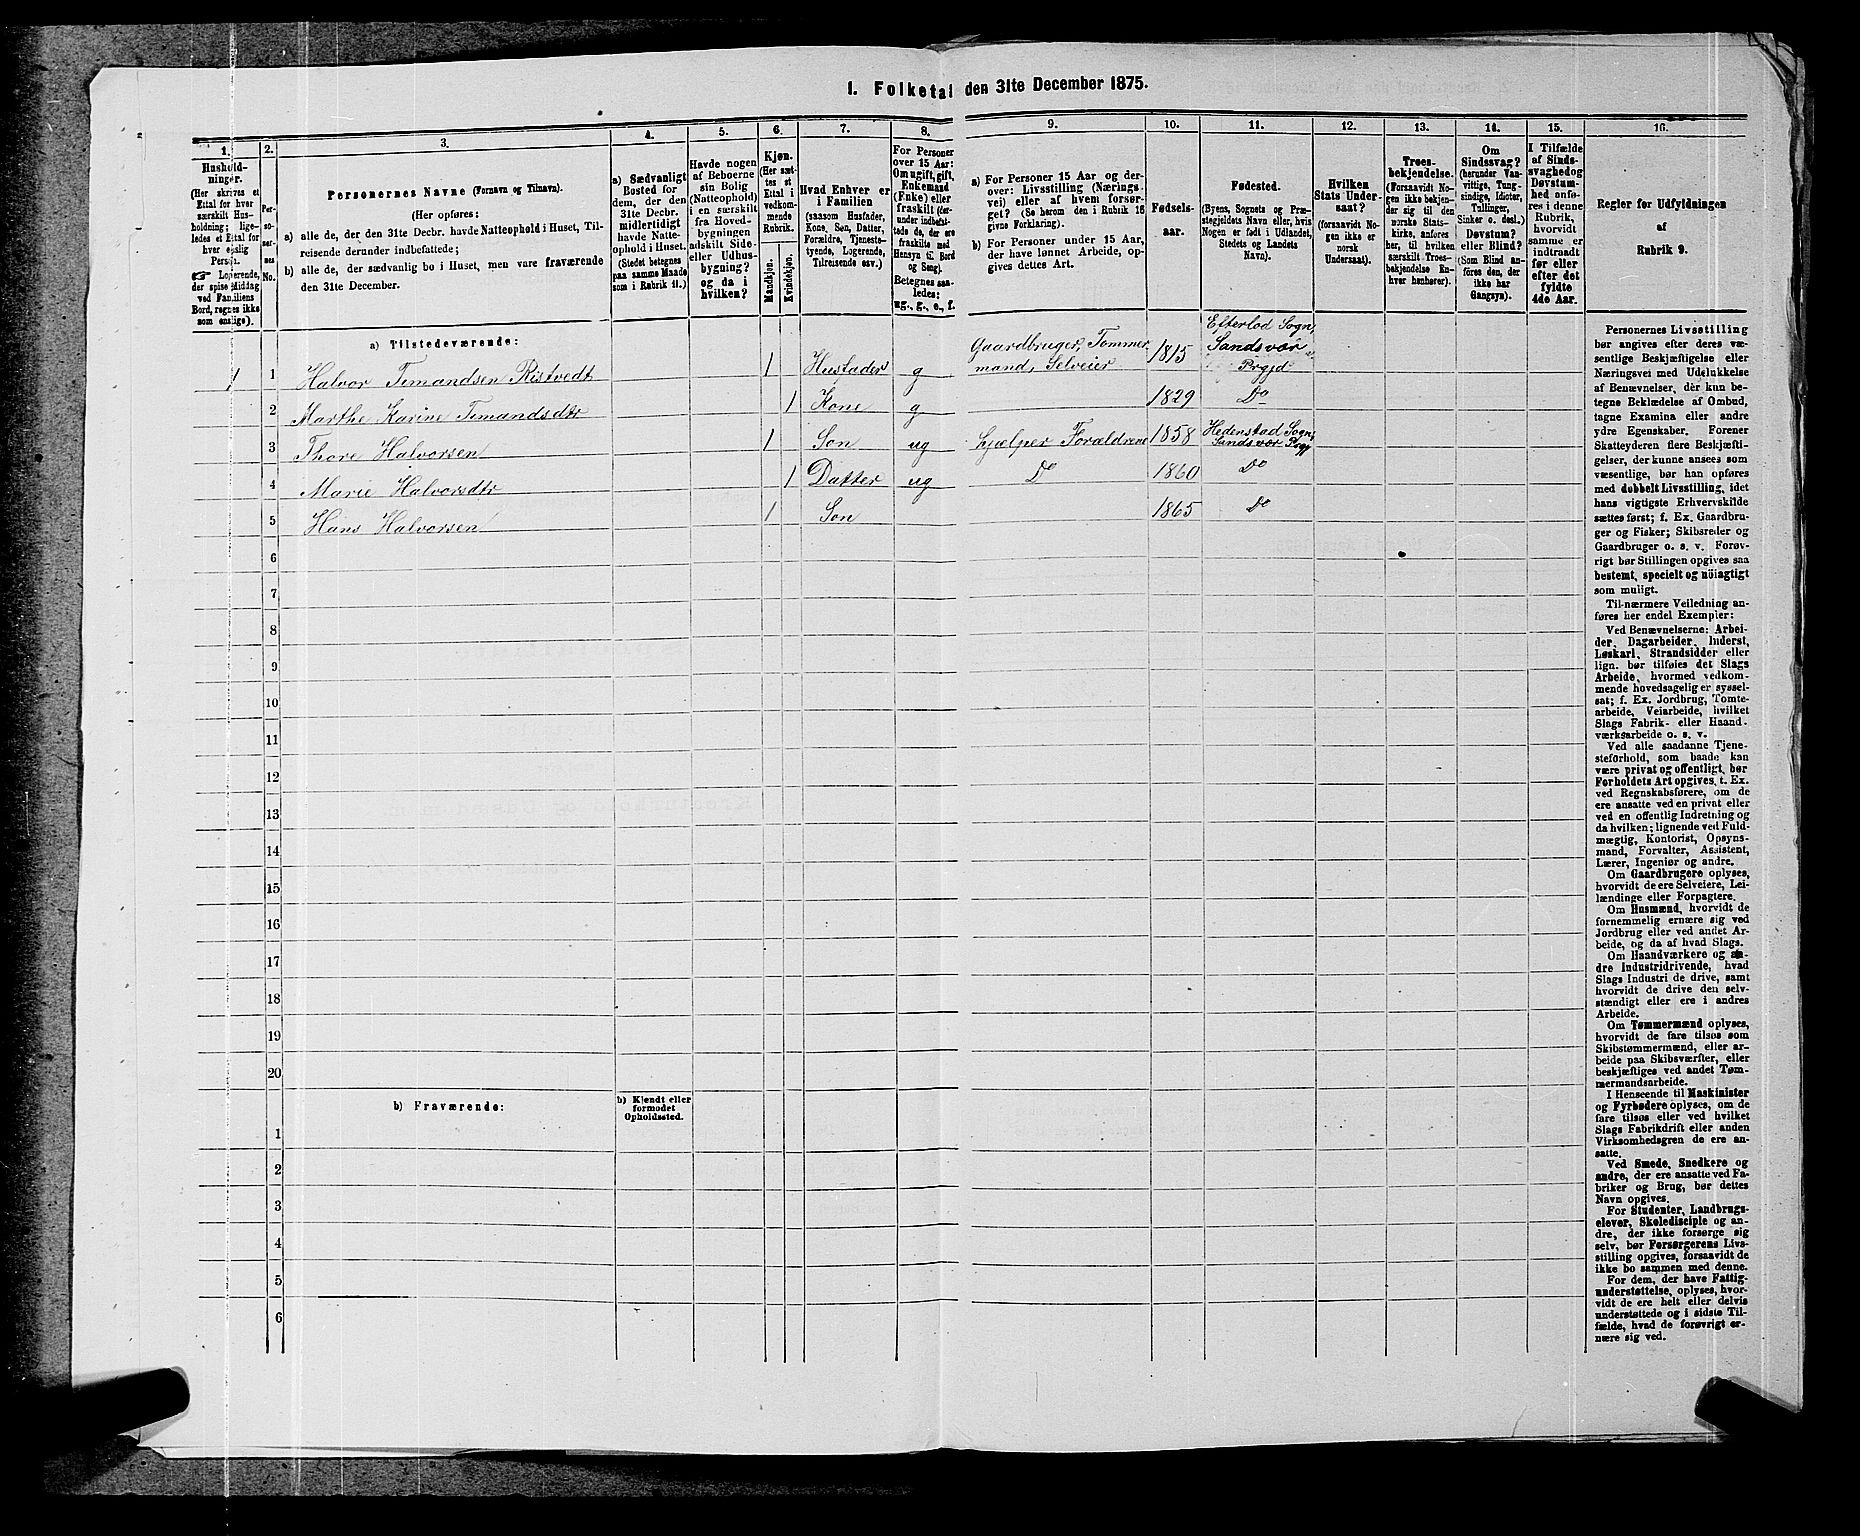 1. Folketal den 31te December 1875.
1.
2.
3.
4.
5.
6.
7.
8.
9.
10.
11.
12.
13.
14.
15.
16.
Hushold-
ninger.
(Her skrives et
Ettal for hver
særskilt Hus-
holdning; lige-
ledes et Ettal for
hver enslig
Person.
☞ Logerende,
der spise Middag
ved Familiens
Bord, regnes ikke
som enslige).
Per-
so-
ner-
nes
No.
Personernes Navne (Fornavn og Tilnavn).
(Her opføres:
a) alle de, der den 31te Decbr. havde Natteophold i Huset, Til-
reisende derunder indbefattede;
b) alle de, der sædvanlig bo i Huset, men vare fraværende
den 31te December.
a) Sædvanligt
Bosted for
dem, der den
31te Decbr.
midlertidigt
havde Natte-
ophold i Huset.
(Stedet betegnes
paa samme Maade
som i Rubrik 11.)
Havde nogen
af Beboerne
sin Bolig
(Natteophold)
i en særskilt
fra Hoved-
bygningen
adskilt Side-
eller Udhus-
bygning?
og da i
hvilken?
Kjøn.
(Her sæt-
tes et
Ettal i
vedkom-
mende
Rubrik.
Mandkjøn.
Kvindekjøn.
Hvad Enhver er
i Familien
(saasom Husfader,
Kone, Søn, Datter,
Forældre, Tjeneste-
tyende, Logerende,
Tilreisende osv.)
For Personer
over 15 Aar:
Om ugift, gift,
Enkemand
(Enke) eller
fraskilt (her-
under indbefat-
tede de, der ere
fraskilte med
Hensyn til Bord
og Seng).
Betegnes saa-
ledes:
ug., g., e., f.
a) For Personer 15 Aar og der-
over: Livsstilling (Nærings-
vei) eller af hvem forsør-
get? (Se herom den i Rubrik 16
givne Forklaring).
b) For Personer under 15 Aar,
der have lønnet Arbeide, op-
gives dettes Art.
Fødsels-
aar.
Fødested.
(Byens, Sognets og Præ-
stegjeldets Navn eller, hvis
Nogen er født i Udlandet,
Stedets og Landets
Navn).
Hvilken
Stats Under-
saat?
(forsaavidt No-
gen ikke er
norsk
Undersaat).
Troes-
bekjendelse.
(Forsaavidt No-
gen ikke bekjen-
der sig til den
norske Stats-
kirke, anføres
her, til hvilken
særskilt Troes-
bekjendelse En-
hver henhører).
Om
Sindssvag?
(herunder Vaa-
vittige, Tung-
sindige, Idioter,
Tullinger,
Sinker o. desl.)
Døvstum?
eller Blind?
(Som Blind an-
føres den, der
ikke har
Gangsyn).
I Tilfælde
af Sinds-
svaghed og
Døvstum-
hed anfø-
res i denne
Rubrik,
hvorvidt
samme er
indtraadt
før eller
efter det
fyldte
4de Aar.
Regler for Udfyldningen
af
Rubrik 9.
a) Tilstedeværende:
1 1 Halvor Temandsen Ristvedt 1 Husfader g Gaardbruger, Tømmer-
mand, Selveier 1815 Efterlod Sogn,
Sandsvær
Prgjd
2 Marthe Karine Temandsdtr 1 Kone g 1829 Do
3 Thore Halvorsen 1 Søn ug Hjælper Forældrene 1858 Hedenstad Sogn,
Sandsvær Prgj
4 Marie Halvorsdtr 1 Datter ug Do 1860 Do
5 Hans Halvorsen 1 Søn 1865 Do
6
7
8
9
10
11
12
13
14
15
16
17
18
19
20
b) Fraværende:
b) Kjendt eller
formodet
Opholdssted.
1
2
3
4
5
6
Personernes Livsstilling
bør angives efter deres væ-
sentlige Beskjæftigelse eller
Næringsvei med Udelukkelse
af Benævnelser, der kun be-
tegne Beklædelse af Ombud,
tagne Examina eller andre
ydre Egenskaber. Forener
Skatteyderen flere Beskjæfti-
gelser, der kunne ansees som
væsentlige, bør han opføres
med dobbelt Livsstilling, idet
hans vigtigste Erhvervskilde
sættes først; f. Ex. Gaardbru-
ger og Fisker; Skibsreder og
Gaardbruger o. s. v. Forøv-
rigt bør Stillingen opgives saa
bestemt, specielt og nöiagtigt
som muligt.
Til nærmere Veiledning an-
føres her endel Exempler:
Ved Benævnelserne: Arbei-
der, Dagarbeider, Inderst,
Løskarl, Strandsidder eller
lign. bør tilføies det Slags
Arbeide, hvormed vedkom-
mende hovedsagelig er syssel-
sat; f. Ex. Jordbrug, Tomte-
arbeide, Veiarbeide, hvilket
Slags Fabrik- eller Haand-
værksarbeide o. s. v.
Ved alle saadanne Tjene-
steforhold, som baade kan
være privat og offentligt, bør
Forholdets Art opgives, t. Ex.
ved Regnskabsførere, om de
ere ansatte ved en privat eller
ved en offentlig Indretning og
da hvilken; lignende ved Fuld-
mægtig, Kontorist, Opsyns-
mand, Forvalter, Assistent,
Lærer, Ingeniør og andre.
Om Gaardbrugere oplyses,
hvorvidt de ere Selveiere, Lei-
lændinge eller Forpagtere.
Om Husmænd, hvorvidt de
fornemmelig ernære sig ved
Jordbrug eller ved andet Ar-
beide, og da af hvad Slags.
Om Haandværkere og an-
dre Industridrivende, hvad
Slags Industri de drive, samt
hvorvidt de drive den selv-
stændigt eller ere i andres
Arbeide.
Om Tømmermænd oplyses,
hvorvidt de fare tilsøs som
Skibstømmermænd, eller ar-
beide paa Skibsværfter, eller
beskjæftiges ved andet Tøm-
mermandsarbeide.
I Henseende til Maskinister
og Fyrbødere oplyses, om de
fare tilsøs eller ved hvilket
Slags Fabrikdrift eller anden
Virksomhedsgren de ere an-
satte.
Ved Smede, Snedkere og
andre, der ere ansatte ved Fa-
briker og Brug, bør dettes
Navn opgives.
For Studenter, Landbrugs-
elever, Skoledisciple og an-
dre, der ikke forsørge sig
selv, bør Forsørgerens Livs-
stilling opgives, forsaavidt de
ikke bo sammen med denne.
For dem, der have Fattig-
understøttelse, oplyses, hvor-
vidt de ere helt eller delvis
understøttede og i sidste Til-
fælde, hvad de forøvrigt er-
nære sig ved.